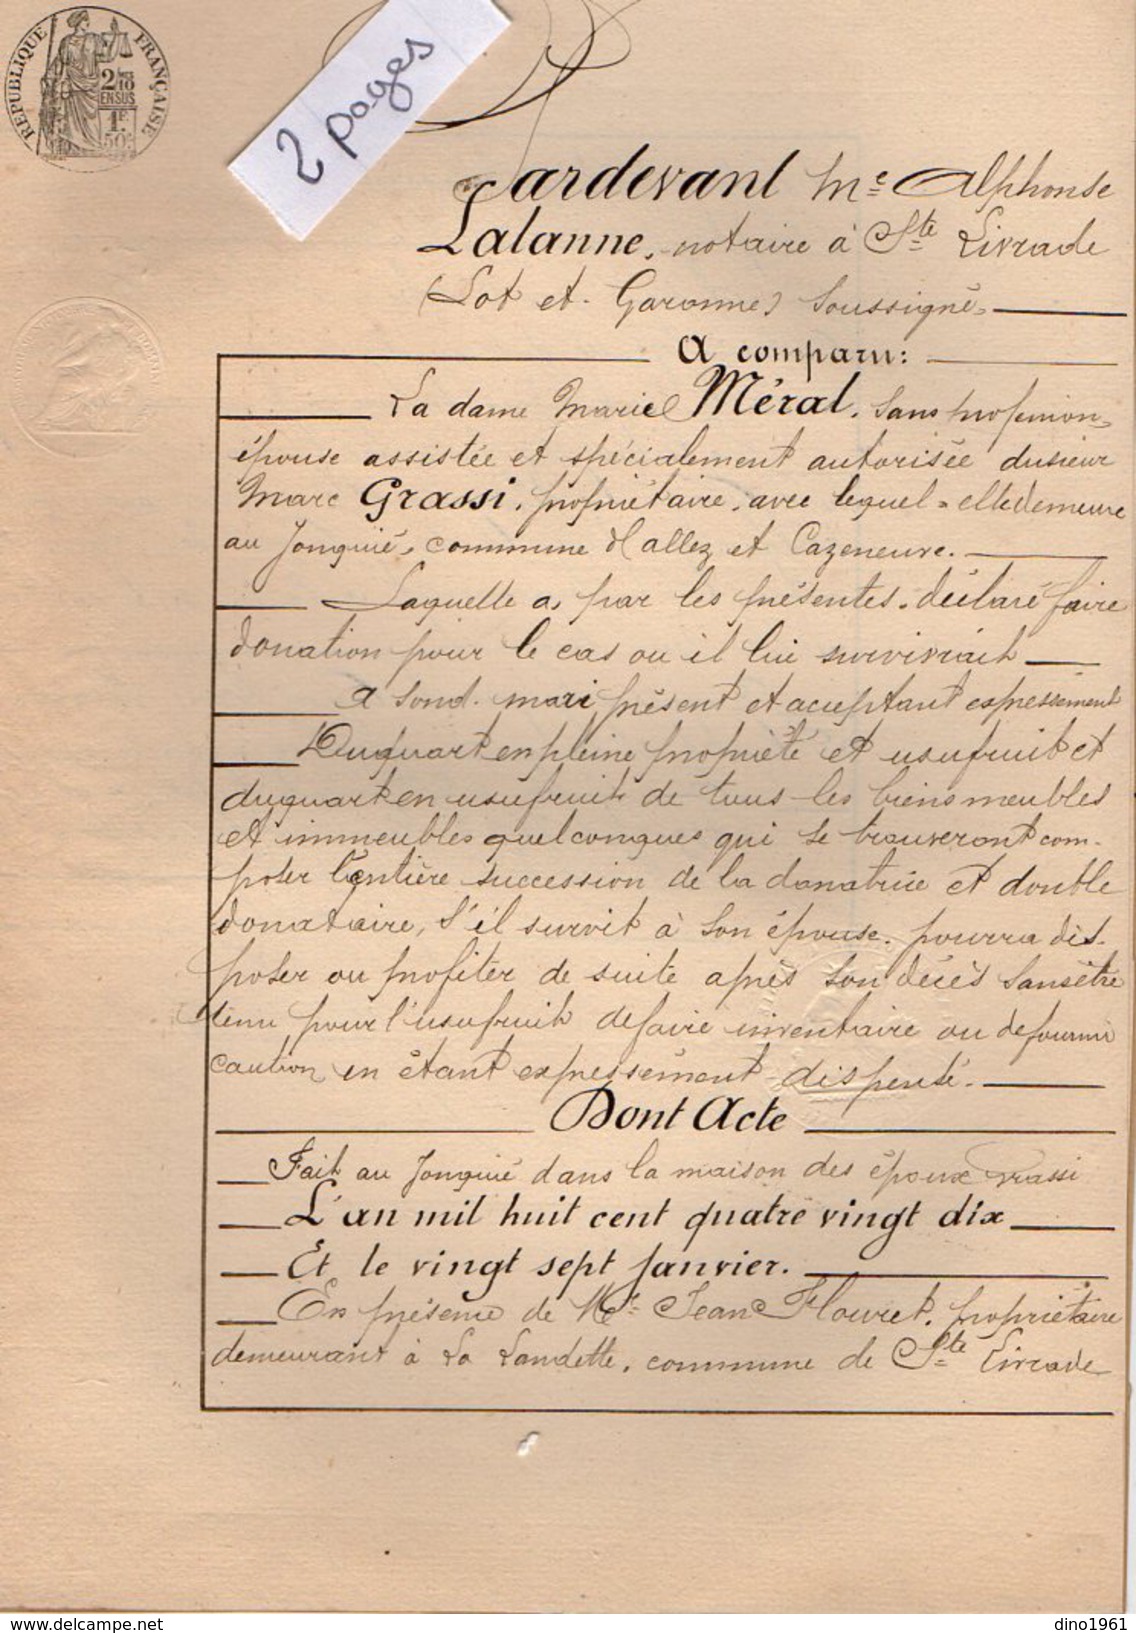 RÉPUBLIQUE FRANÇAISE
2/10 EN SUS
1F 50c
2 pages
Pardevant Me Alphonse
Lalanne, notaire à Ste Livrade
(Lot et Garonne) soussigné,
A comparu:
La dame Marie Méral, sans profession,
épouse assistée et spécialement autorisée du sieur
Marc Grassi, propriétaire, avec lequel elle demeure
au Jonquié, commune d'Hallez et Cazeneuve.
Laquelle a, par les présentes, déclaré faire
donation pour le cas où il lui survivrait
A son d. mari présent et acceptant expressément
Du quart en pleine propriété et usufruit et
du quart en usufruit de tous les biens meubles
et immeubles quelconques qui se trouveront com-
poser l'entière succession de la donatrice et
donataire, s'il survit à son épouse, pourra dis-
poser ou profiter de suite après son décès sans être
tenu pour l'usufruit de faire inventaire ou de fournir
caution, en étant expressément dispensé.
Dont Acte
Fait au Jonquié dans la maison des époux Grassi
L'an mil huit cent quatre vingt dix
Et le vingt sept janvier.
En présence de Mr Jean Flouret, propriétaire
demeurant à La Landette, commune de Ste Livrade
dino1961